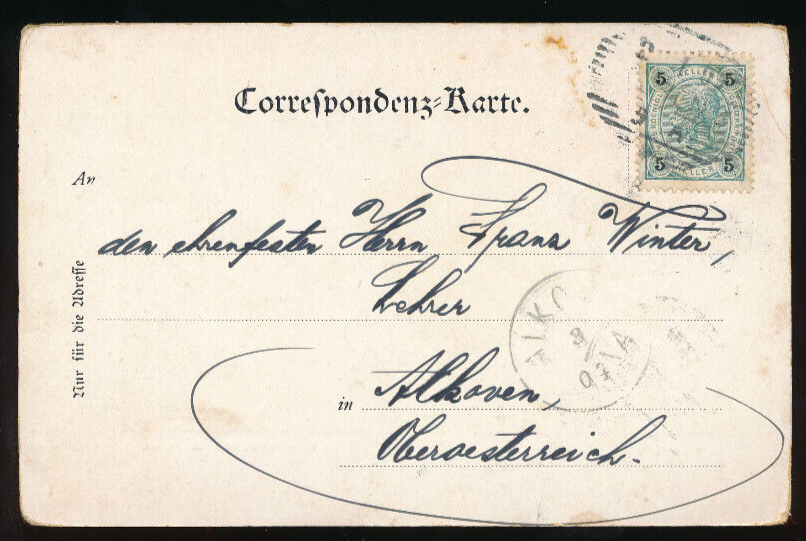 Correſpondenz=Karte.
5 HELLER 5
5 HELLER 5
An
den ehrenfesten Herrn Franz Winter,
Lehrer
in Alkoven,
Oberoesterreich.
Nur für die Adreſſe
ALKO